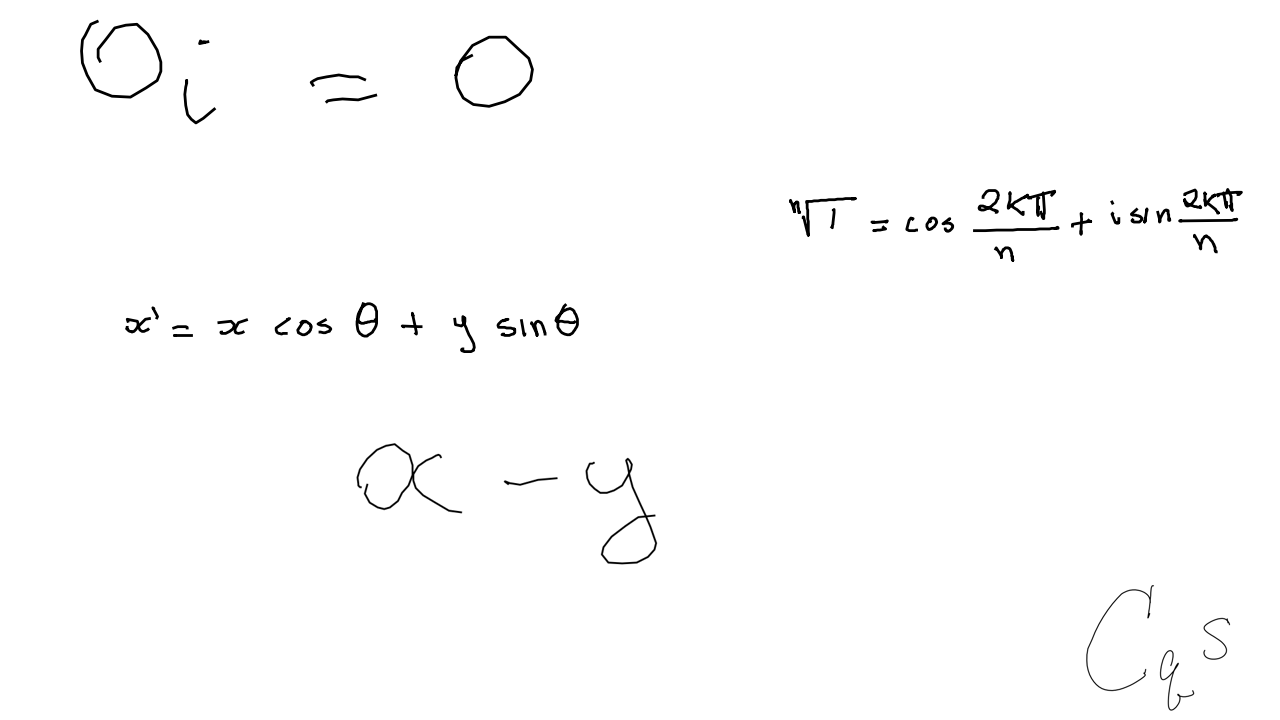 0i = 0
ⁿ√1 = cos 2kπ/n + i sin 2kπ/n
x' = x cos θ + y sin θ
x - y
C_q s